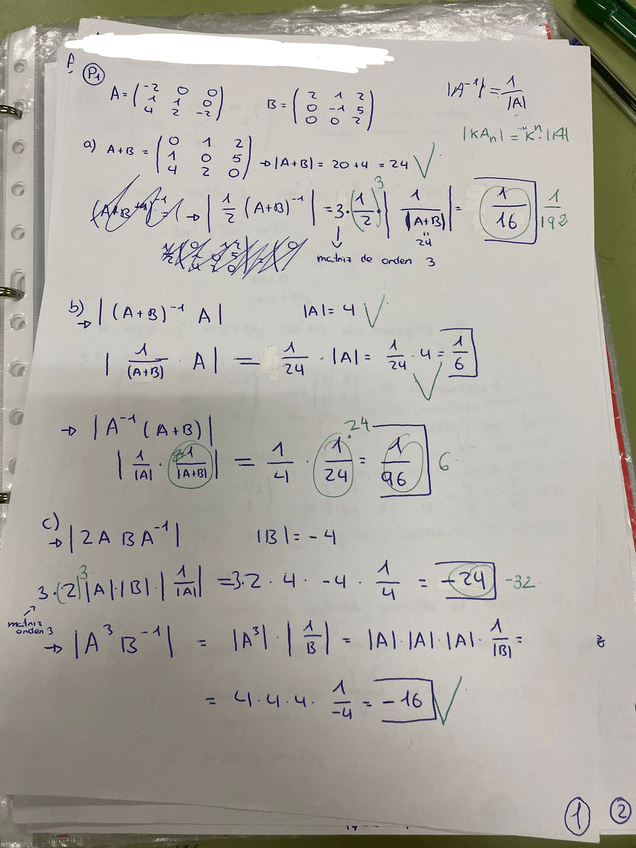 P1
A = (-2 0 0 / 1 1 0 / 4 2 -2) B = (2 1 2 / 0 -1 5 / 0 0 2) |A⁻¹| = 1/|A|
|kAₙ| = kⁿ·|A|
a) A+B = (0 1 2 / 1 0 5 / 4 2 0) → |A+B| = 20+4 = 24 ✓
→ |1/2 (A+B)⁻¹| = 3·(1/2)³·|1/(A+B)| = 1/16 1/192
24
matriz de orden 3
b) → |(A+B)⁻¹ A| |A| = 4 ✓
|1/(A+B) · A| = 1/24 · |A| = 1/24 · 4 = 1/6 ✓
→ |A⁻¹ (A+B)|
|1/|A| · 1/|A+B|| = 1/4 · 1/24 = 1/96 ·24 6
c) → |2A BA⁻¹| |B| = -4
3·(2)³|A|·|B|·|1/|A|| = 3·2·4·-4·1/4 = -24 -32
matriz orden 3
→ |A³ B⁻¹| = |A³|·|1/B| = |A|·|A|·|A|·1/|B| =
= 4·4·4·1/-4 = -16 ✓
1 2